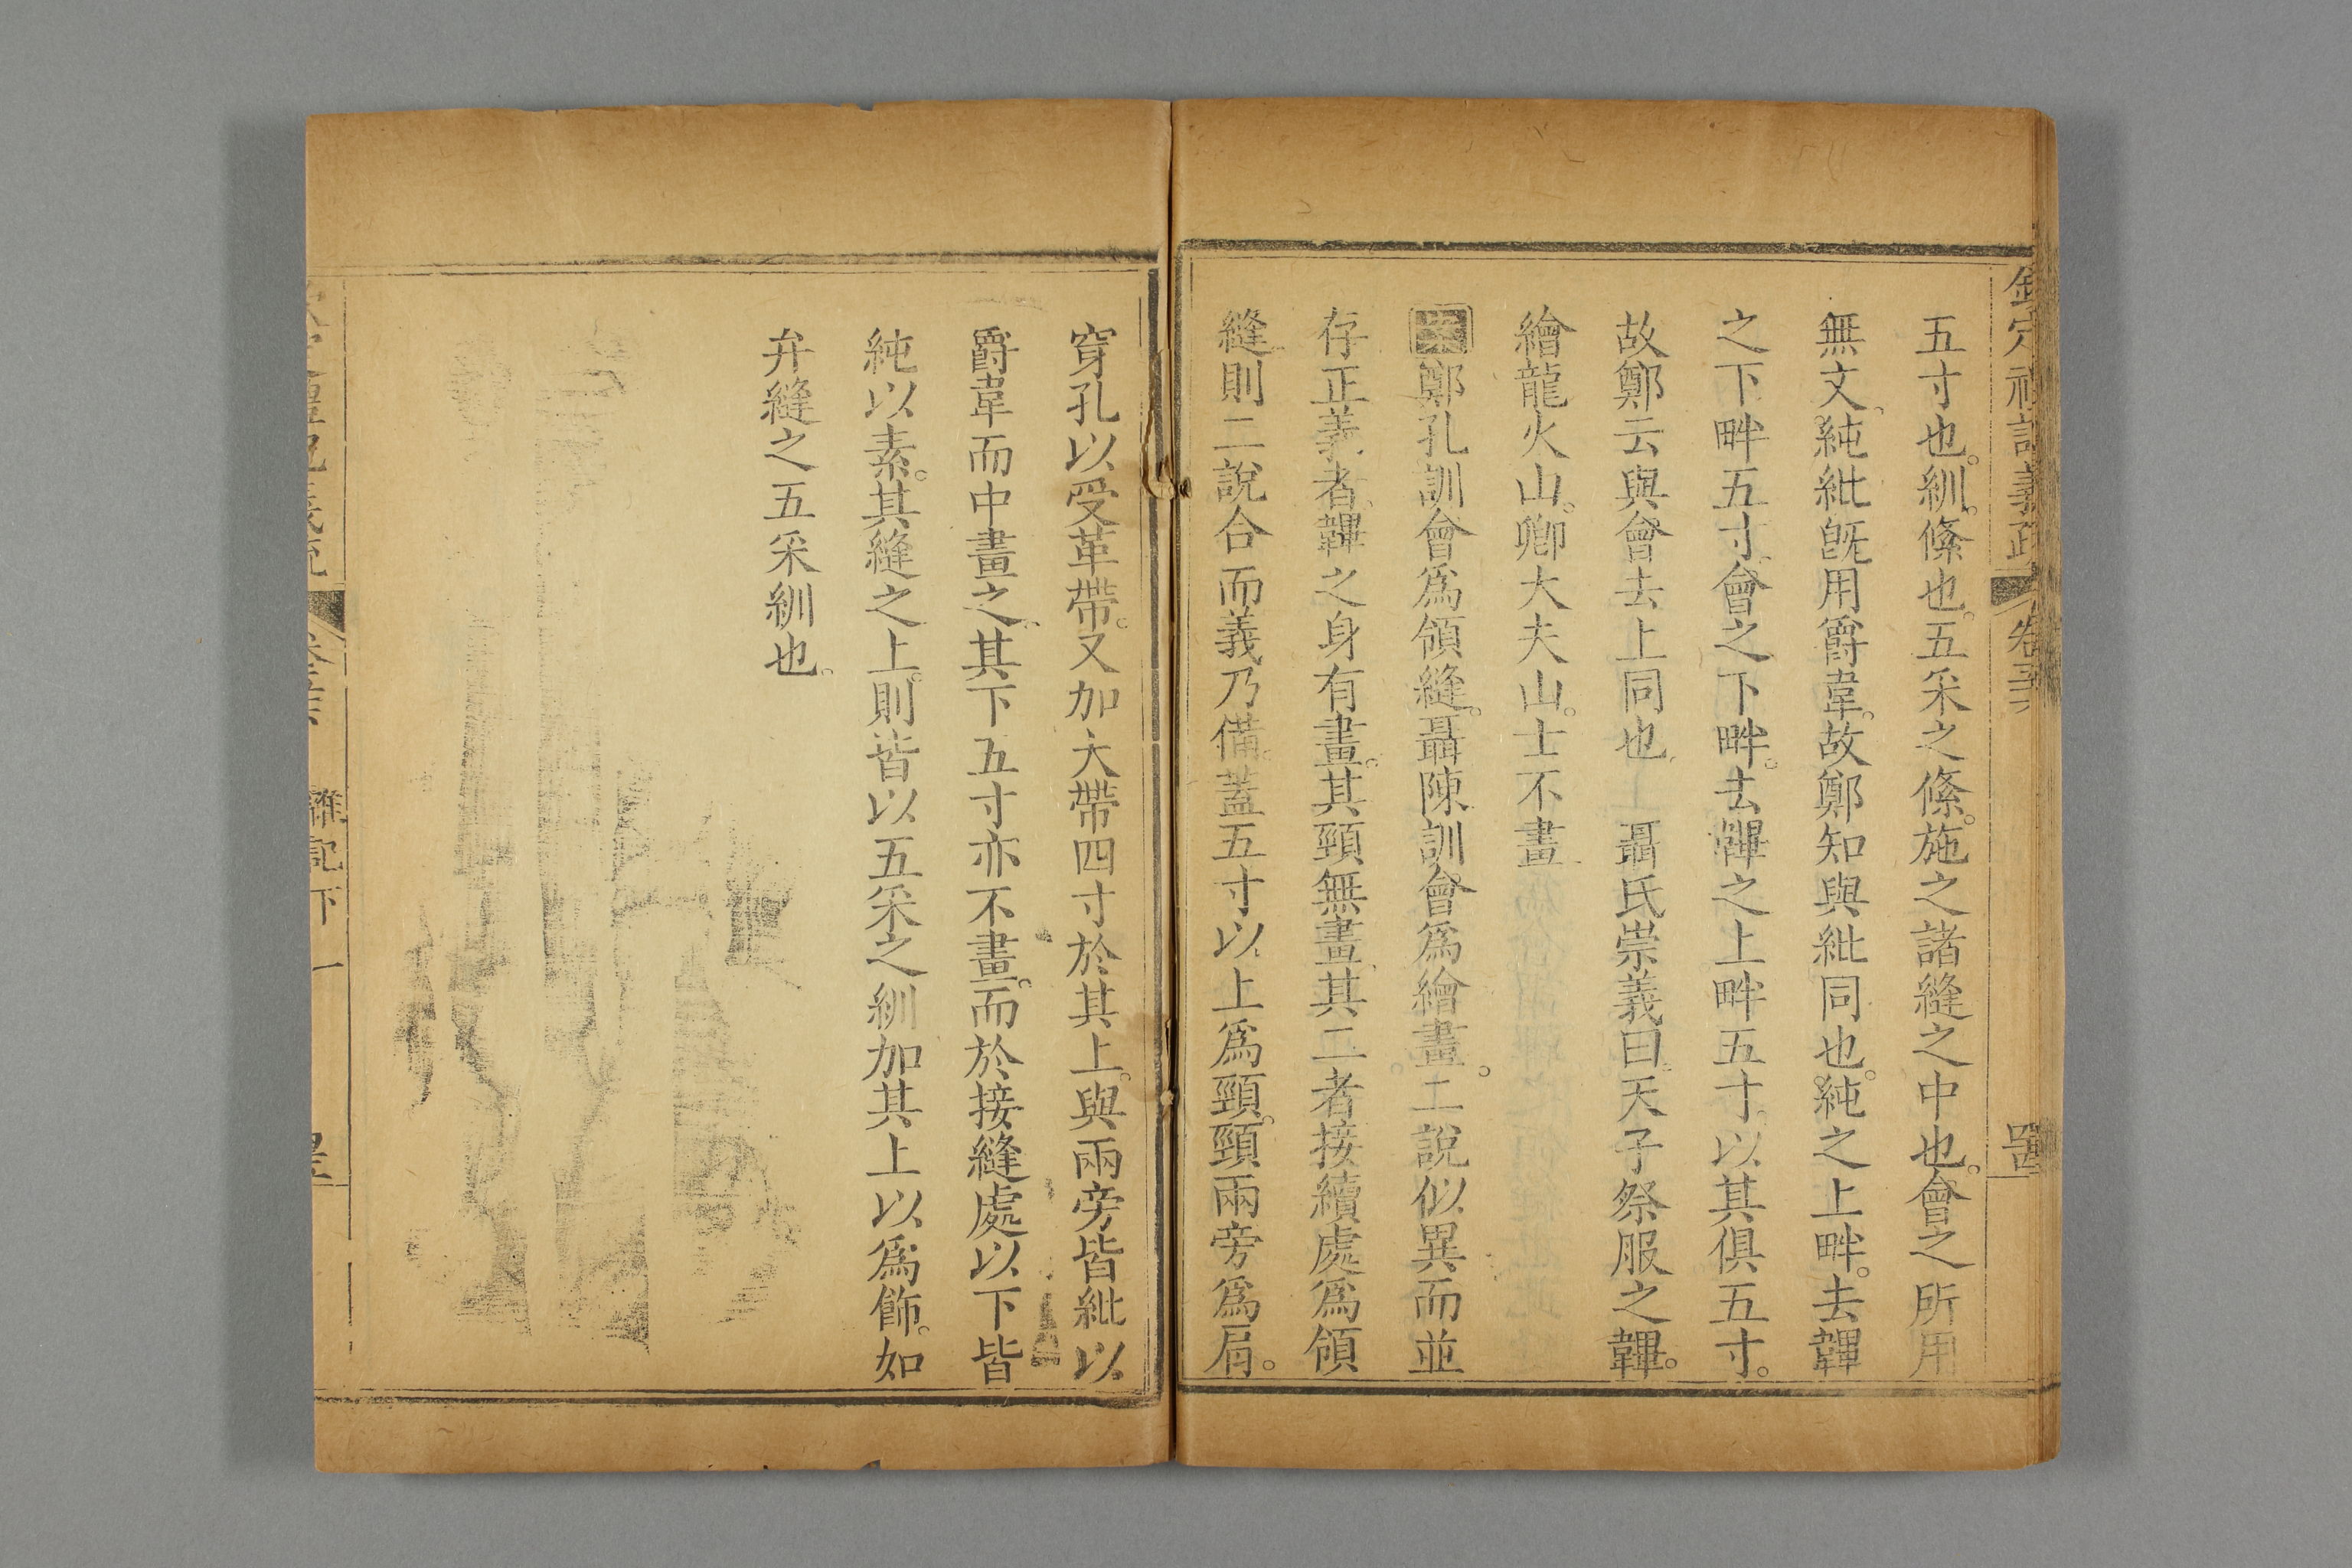 欽定禮記義疏 卷五十三 四十四
五寸也。紃。絛也。五采之絛。施之諸縫之中也。會之所用
無文。純紕旣用爵韋。故鄭知與紕同也。純之上畔。去韠
之下畔五寸。會之下畔。去韠之上畔五寸。以其俱五寸。
故鄭云與會去上同也 聶氏崇義曰。天子祭服之韠。
繪龍火山。卿大夫山。士不畫
案鄭孔訓會爲領縫。聶陳訓會爲繪畫。二說似異而並
存正義者。韠之身有畫。其頸無畫。其二者接續處爲領
縫則二說合而義乃備。蓋五寸以上爲頸。頸兩旁爲肩。
穿孔以受革帶。又加大帶四寸於其上。與兩旁皆紕以
爵韋而中畫之。其下五寸亦不畫。而於接縫處以下皆
純以素。其縫之上。則皆以五采之紃加其上以爲飾。如
弁縫之五采紃也。
雜記下一